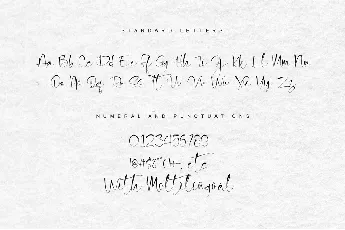 STANDARD LETTERS
Aa Bb Cc Dd Ee Ff Gg Hh Ii Jj Kk Ll Mm Nn
Oo Pp Qq Rr Ss Tt Uu Vv Ww Xx Yy Zz
NUMERAL AND PUNCTUATIONS
0123456789
etc
With Multilingual